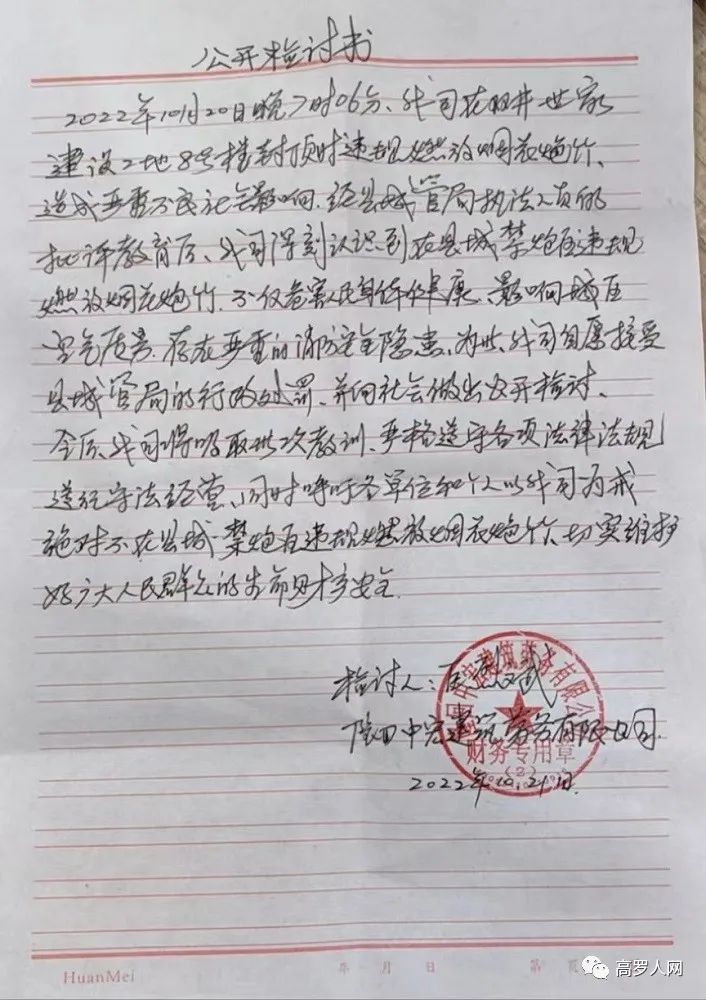 公开检讨书
2022年10月20日晚7时06分、我司在田井世家
建设工地8号楼封顶时违规燃放烟花炮竹、
造成严重不良社会影响.经县城管局执法人员的
批评教育后、我司深刻认识到在县城禁炮区违规
燃放烟花炮竹.不仅危害人民身体健康、影响城区
空气质量.存在严重的消防安全隐患、为此、我司自愿接受
县城管局的行政处罚、并向社会做出公开检讨、
今后、我司将吸取此次教训、严格遵守各项法律法规
遵纪守法经营、同时呼吁各单位和个人以我司为戒
绝对不在县城禁炮区违规燃放烟花炮竹、切实维护
好广大人民群众的生命财产安全.
检讨人:
中宏建筑劳务有限公司
财务专用章
(2)
2022年10.21日.
HuanMei
年 月 日
第 页
高罗人网